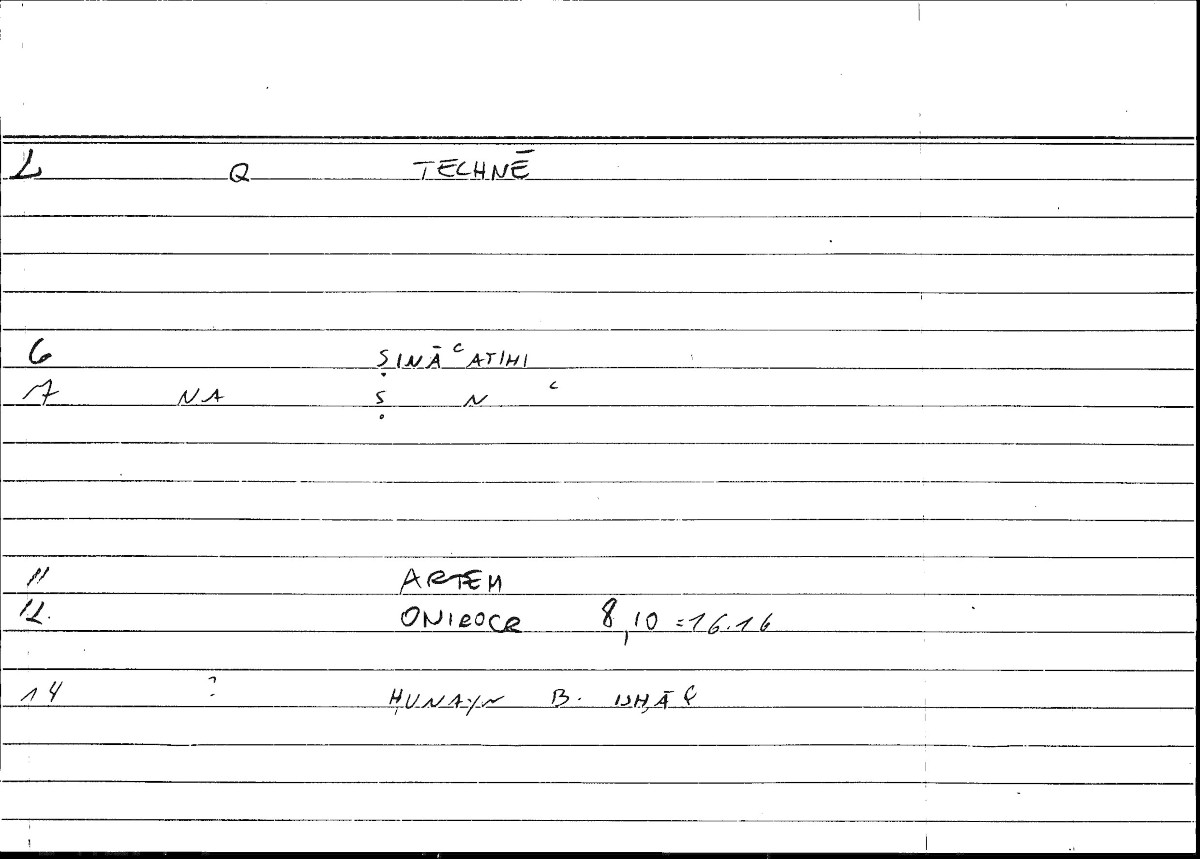 1 Q TECHNĒ
6 ṢINĀʿATIHI
7 NA Ṣ N ʿ
11 ARTEM
12. ONIROCR 8,10 = 16.16
14 ? ḤUNAYN B. ISḤĀQ